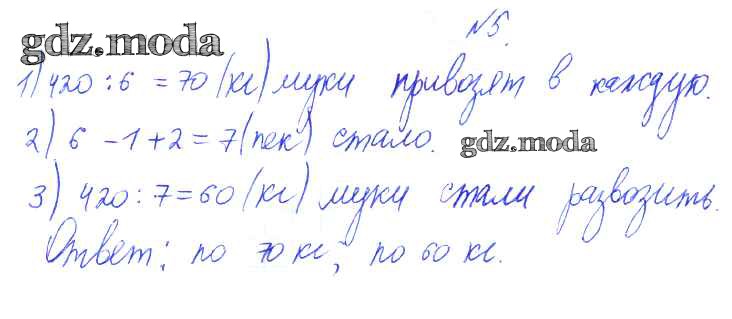 №5.
gdz.moda
1) 420 : 6 = 70 (кг) муки привозят в каждую.
2) 6 - 1 + 2 = 7 (пек) стало. gdz.moda
3) 420 : 7 = 60 (кг) муки стали развозить.
Ответ: по 70 кг; по 60 кг.